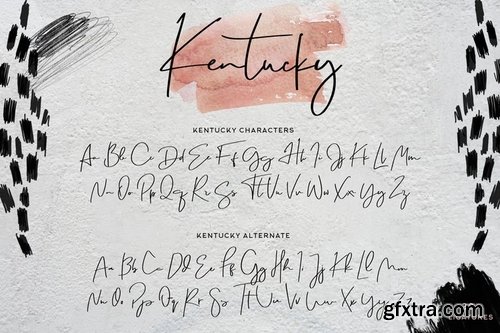 Kentucky
KENTUCKY CHARACTERS
Aa Bb Cc Dd Ee Ff Gg Hh Ii Jj Kk Ll Mm
Nn Oo Pp Qq Rr Ss Tt Uu Vv Ww Xx Yy Zz
KENTUCKY ALTERNATE
Aa Bb Cc Dd Ee Ff Gg Hh Ii Jj Kk Ll Mm
Nn Oo Pp Qq Rr Ss Tt Uu Vv Ww Xx Yy Zz
gfxtra.com
LIGATURES